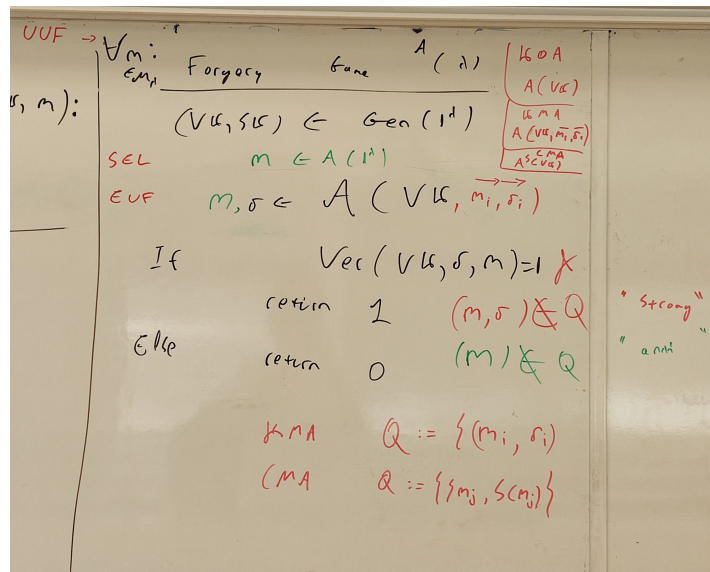 UUF → ∀m:
∈M_λ Forgery Game A(λ)
KOA
A(VK)
KMA
A(VK, m⃗ᵢ, σ⃗ᵢ)
CMA
A^S(VK)
, m):
(VK, SK) ← Gen(1^λ)
SEL m ← A(1^λ)
EUF m, σ ← A(VK, m⃗ᵢ, σ⃗ᵢ)
If Ver(VK, σ, m)=1 ∧
return 1 (m, σ) ∉ Q "Strong"
Else return 0 (m) ∉ Q
KMA Q := {(mᵢ, σᵢ)
CMA Q := {{mⱼ, S(mⱼ)}